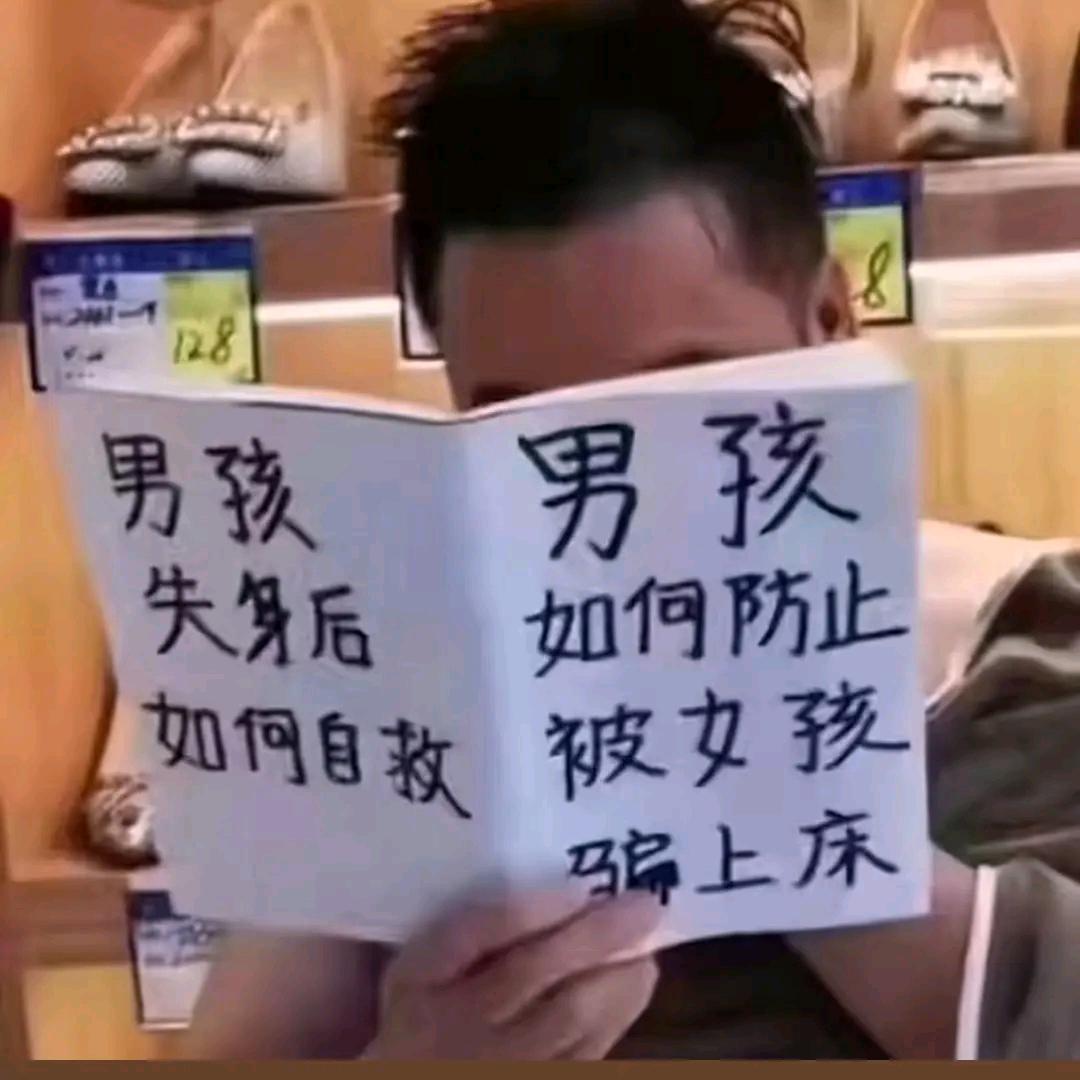 男孩
失身后
如何自救
男孩
如何防止
被女孩
骗上床
128
8